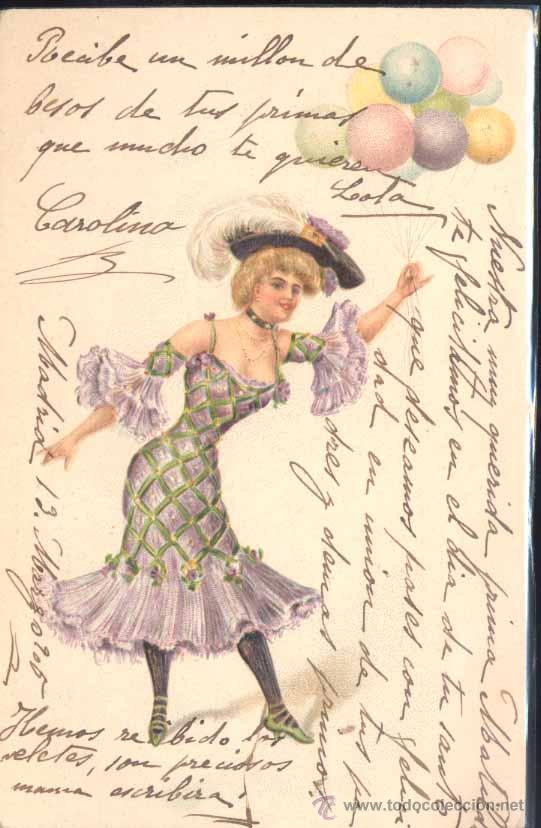 Recibe un millon de
besos de tus primas
que mucho te quieren
Lola
Carolina
Madrid 13 Marzo
Nuestra muy querida prima
te felicitamos en el dia de tu santo
que deseamos pases con felici
dad en union de tus pa
dres y demas primos.
Hemos recibido los
son preciosos
mama escribira!
www.todocoleccion.net